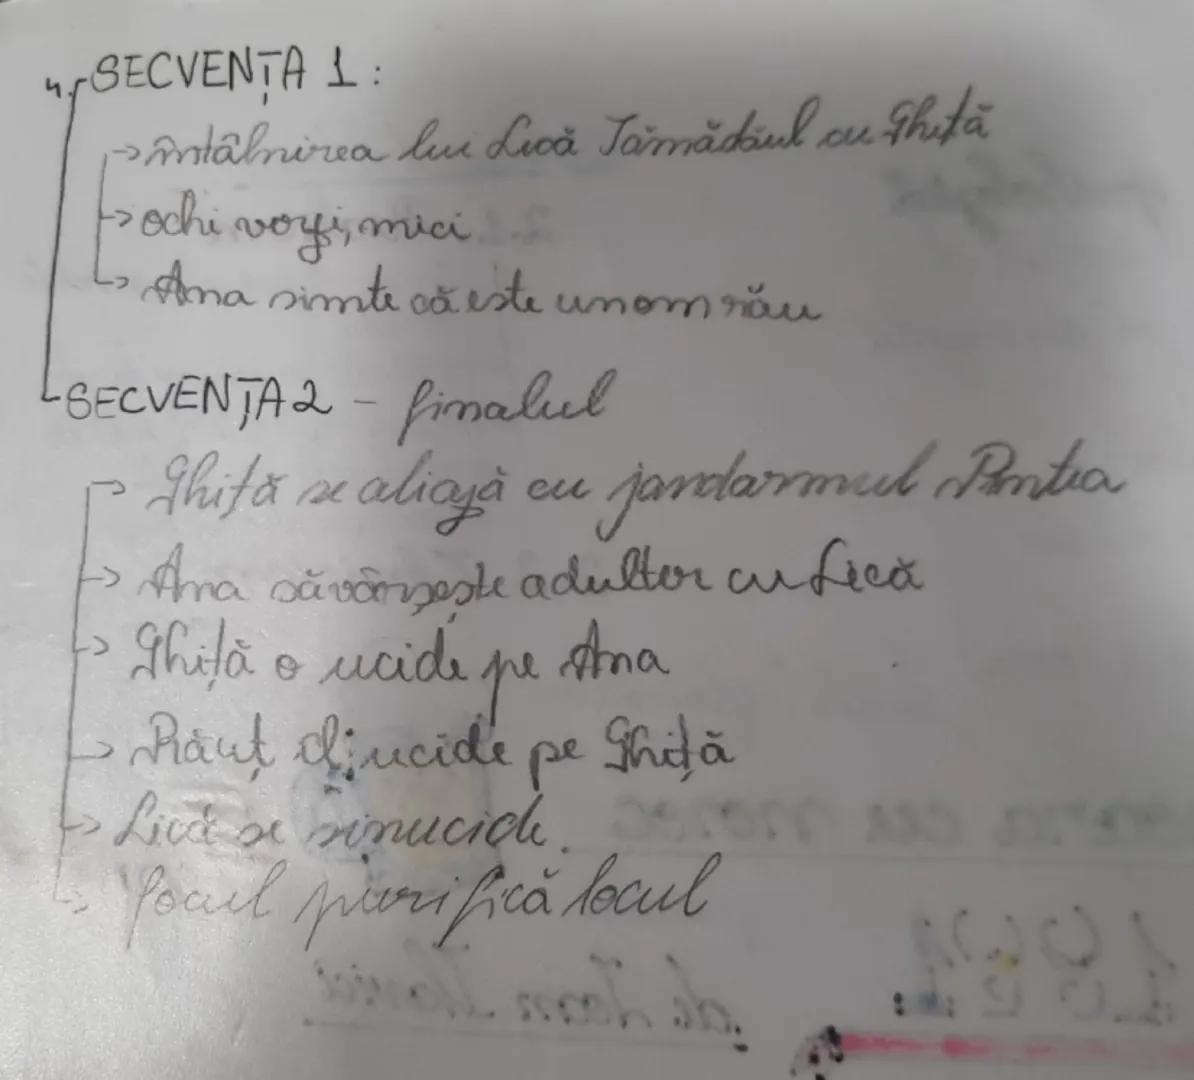 4. SECVENȚA 1:
→ întâlnirea lui Lică Tămădăul cu Ghiță
→ ochi vorgi, mici
→ Ana simte că este un om rău
SECVENȚA 2 - finalul
→ Ghiță se aliază cu jandarmul Pintea
→ Ana săvârșește adulter cu Lică
→ Ghiță o ucide pe Ana
→ Răuț îl ucide pe Ghiță
→ Lică se sinucide.
→ focul purifică locul
de Ioan Slavici